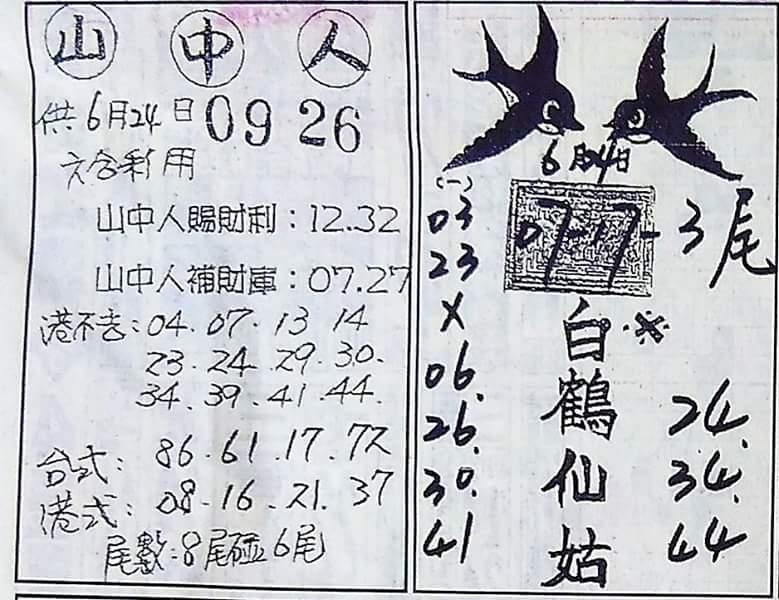 山中人
供6月24日 09 26
六合利用
山中人賜財利：12.32
山中人補財庫：07.27
港不去：04.07.13 14
23.24.29.30.
34.39.41.44.
台式：86.61.17.7X
港式：08.16.21.37
尾數：8尾碰6尾
6月24日
(一)
03
23
X
06.
26.
30.
41
07-17-3尾
白鶴仙姑
24.
34.
44